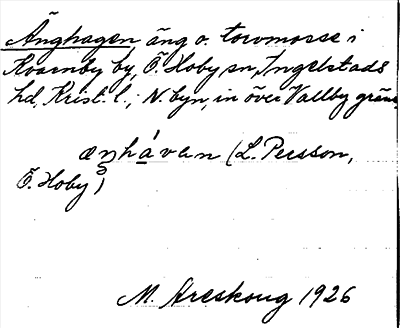 Änghagen äng o. torvmosse i
Kvarnby by, Ö. Hoby sn, Ingelstads
hd, Krist. l.; N. byn, in över Vallby gräns.
æŋhávan (L. Persson,
Ö. Hoby)
M. Areskoug 1926